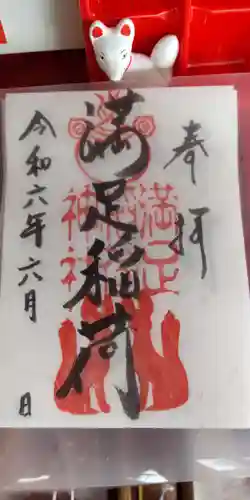 奉拝
満足稲荷
満足
稲荷
神社
令和六年六月 日